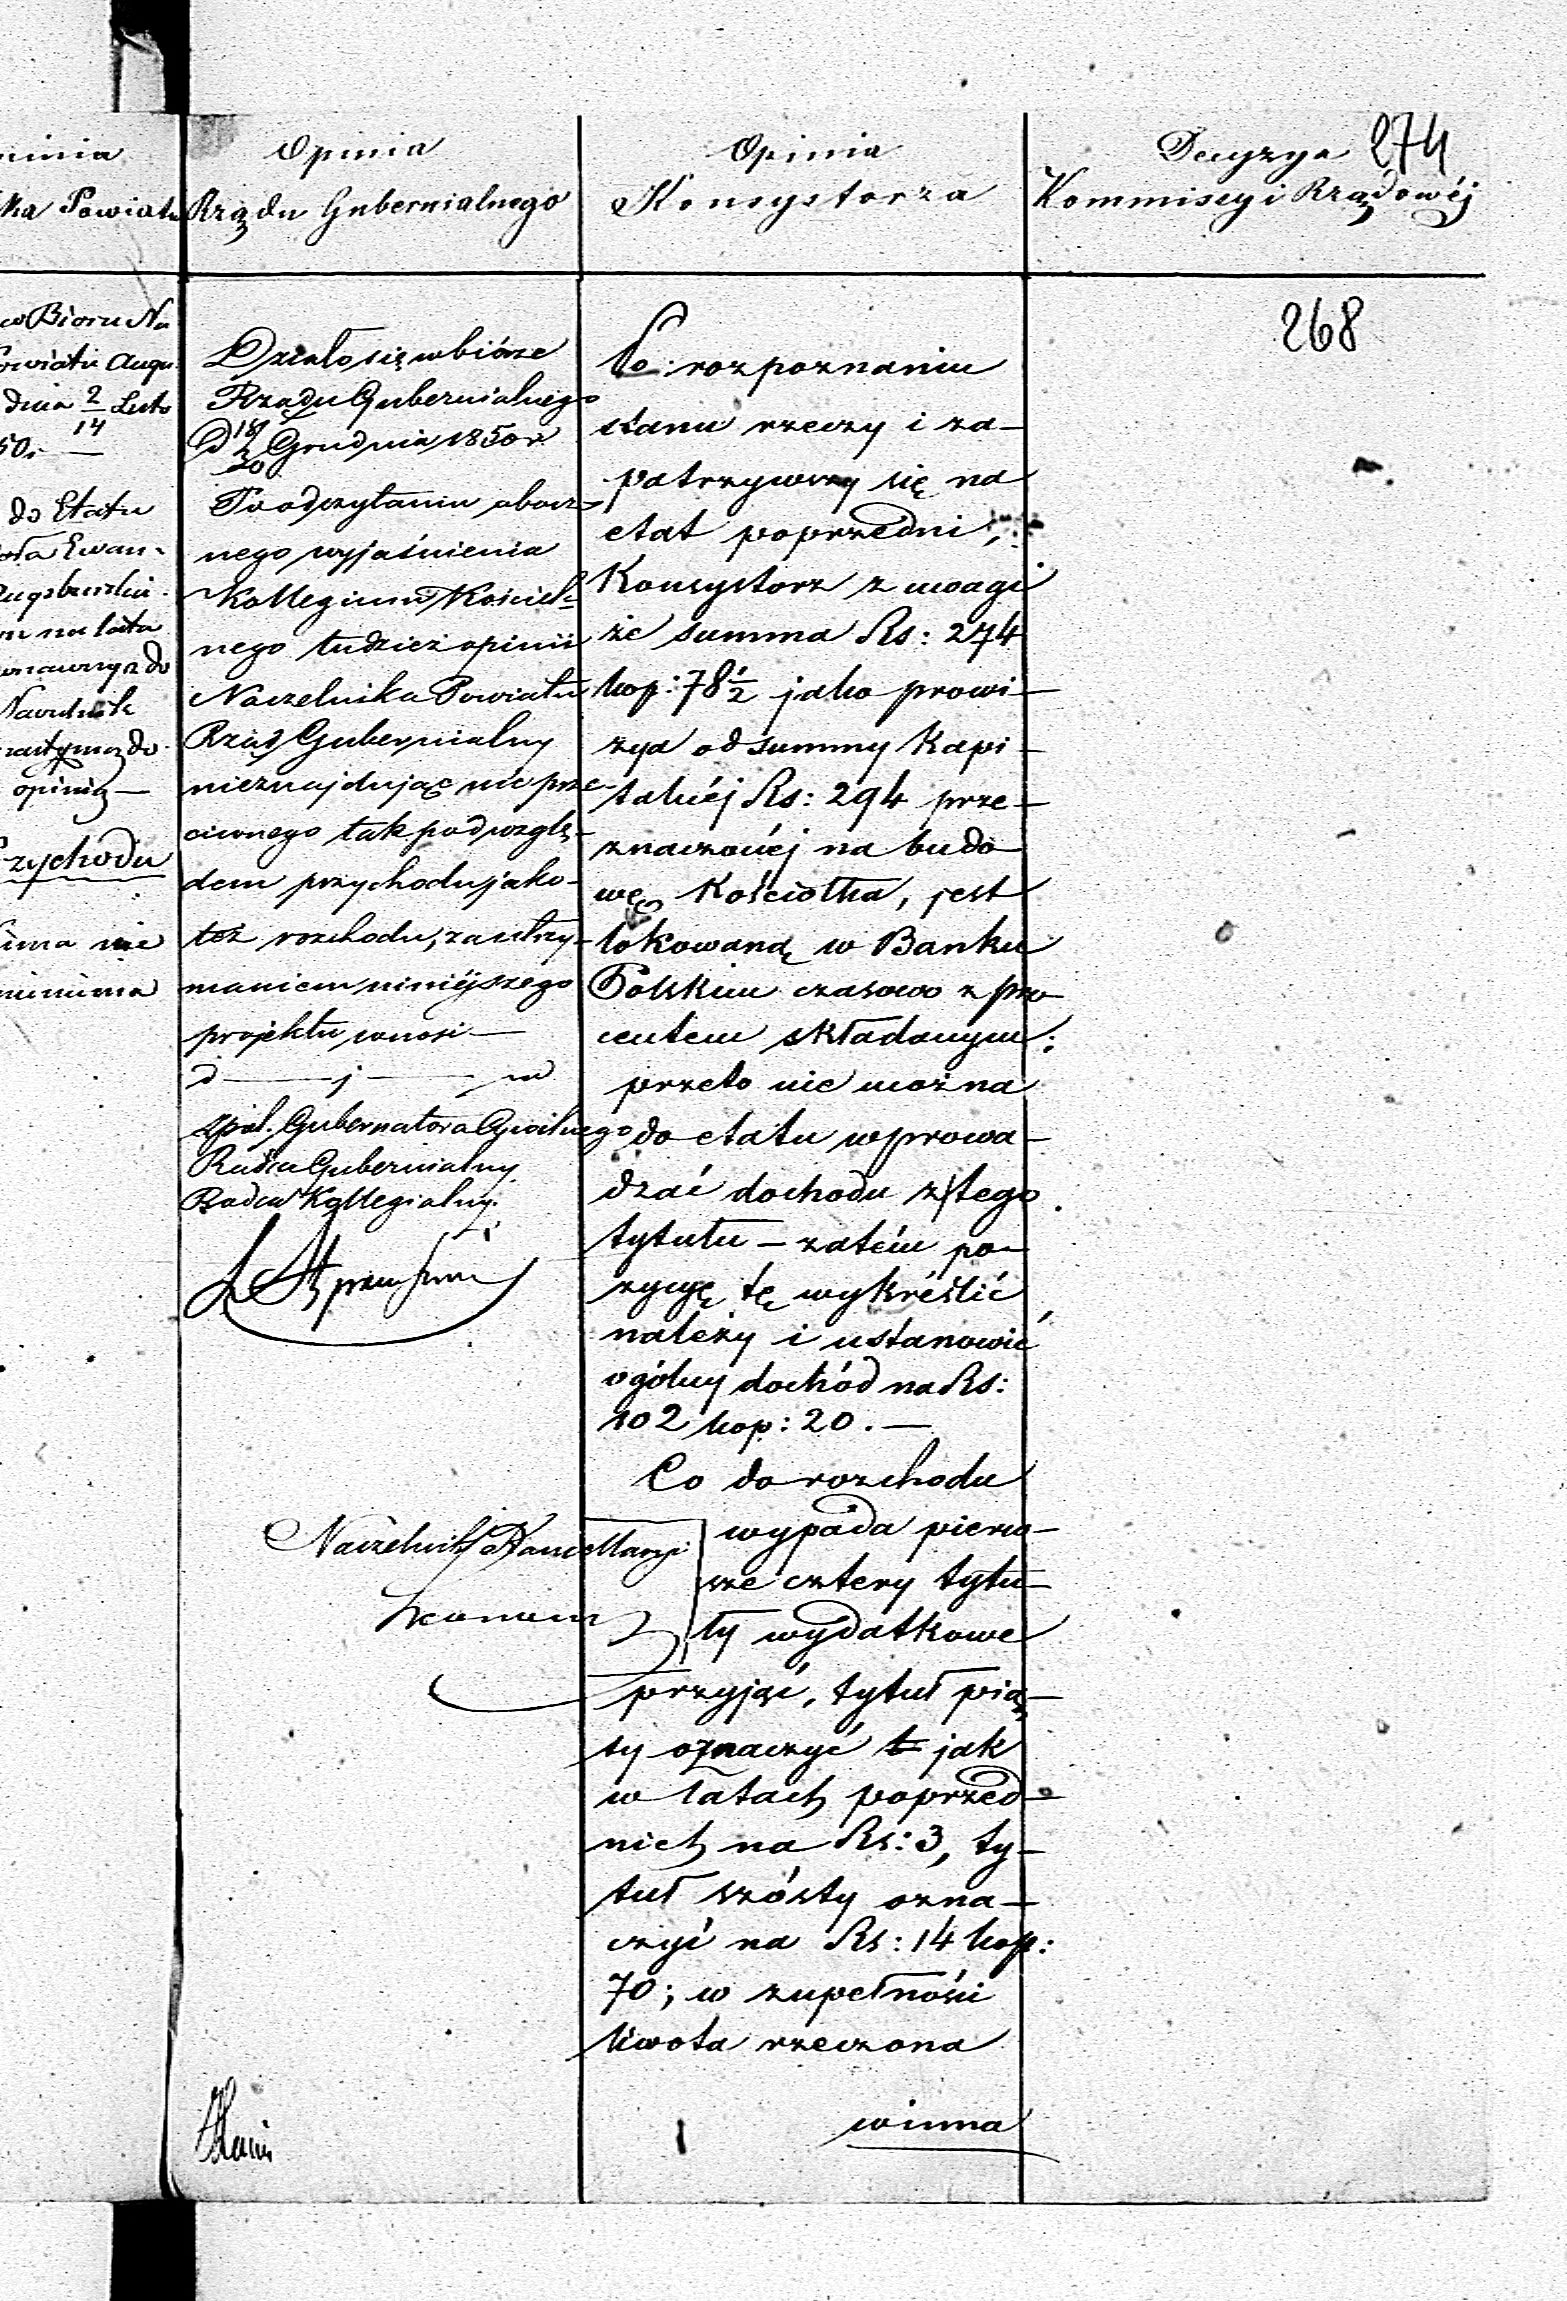 274
268
Opinia
Rządu Gubernialnego
Opinia
Konsystorza
Decyzya
Kommissyi Rządowéj
w Bióru Na
dnia 2/14 Luto
50. —
do Etatu
Ewan-
na lata
opinią —
nie
Działo się w biórze
Rządu Gubernialnego
d 18/30 Grudnia 1850 r
Po odczytaniu obocz-
nego wyjaśnienia
Kollegium Kościel-
nego tudzież opinii
Naczelnika Powiatu
Rząd Gubernialny
nieznajdując nic prze-
ciwnego tak pod wzglę-
dem przychodu jako-
też rozchodu, za utrzy-
maniem niniéjszego
projektu wnosi —
Gubernatora Cywilnego
Radca Gubernialny
Radca Kollegialny
Naczelnik Kancellaryi
Po rozpoznaniu
stanu rzeczy i za-
patrzywszy się na
etat poprzedni,
Konsystorz z uwagi
że summa Rs: 274
kop: 78 1/2 jako prowi-
zya od summy Kapi-
talnéj Rs: 294 prze-
znaczonéj na budo-
wę Kościołka, jest
lokowaną w Banku
Polskim czasowo z pro-
centem składanym;
przeto nie można
do etatu wprowa-
dzać dochodu z tego
tytułu — zatém po-
zycyę tę wykréślić
należy i ustanowić
ogólny dochód na Rs:
102 kop: 20. —
Co do rozchodu
wypada pierw-
sze cztery tytu-
ły wydatkowe
przyjąć, tytuł pią-
ty oznaczyć jak
w latach poprzed-
nich na Rs: 3, ty-
tuł szósty ozna-
czyć na Rs: 14 kop:
70; w zupełności
kwota rzeczona
winna